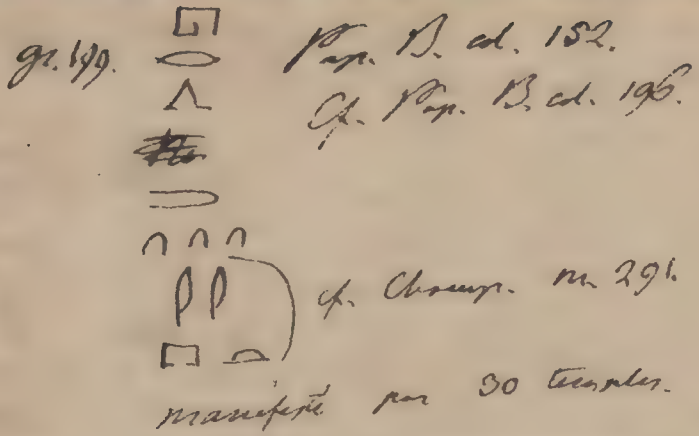 gr. 199. Pap. B. col. 152.
Cf. Pap. B. col. 196.
𓉔
𓂋
𓂻
𓎆 𓎆 𓎆
𓇋 𓇋
𓉐 𓏏
cf. Champ. n. 291.
manifesté par 30 temples.